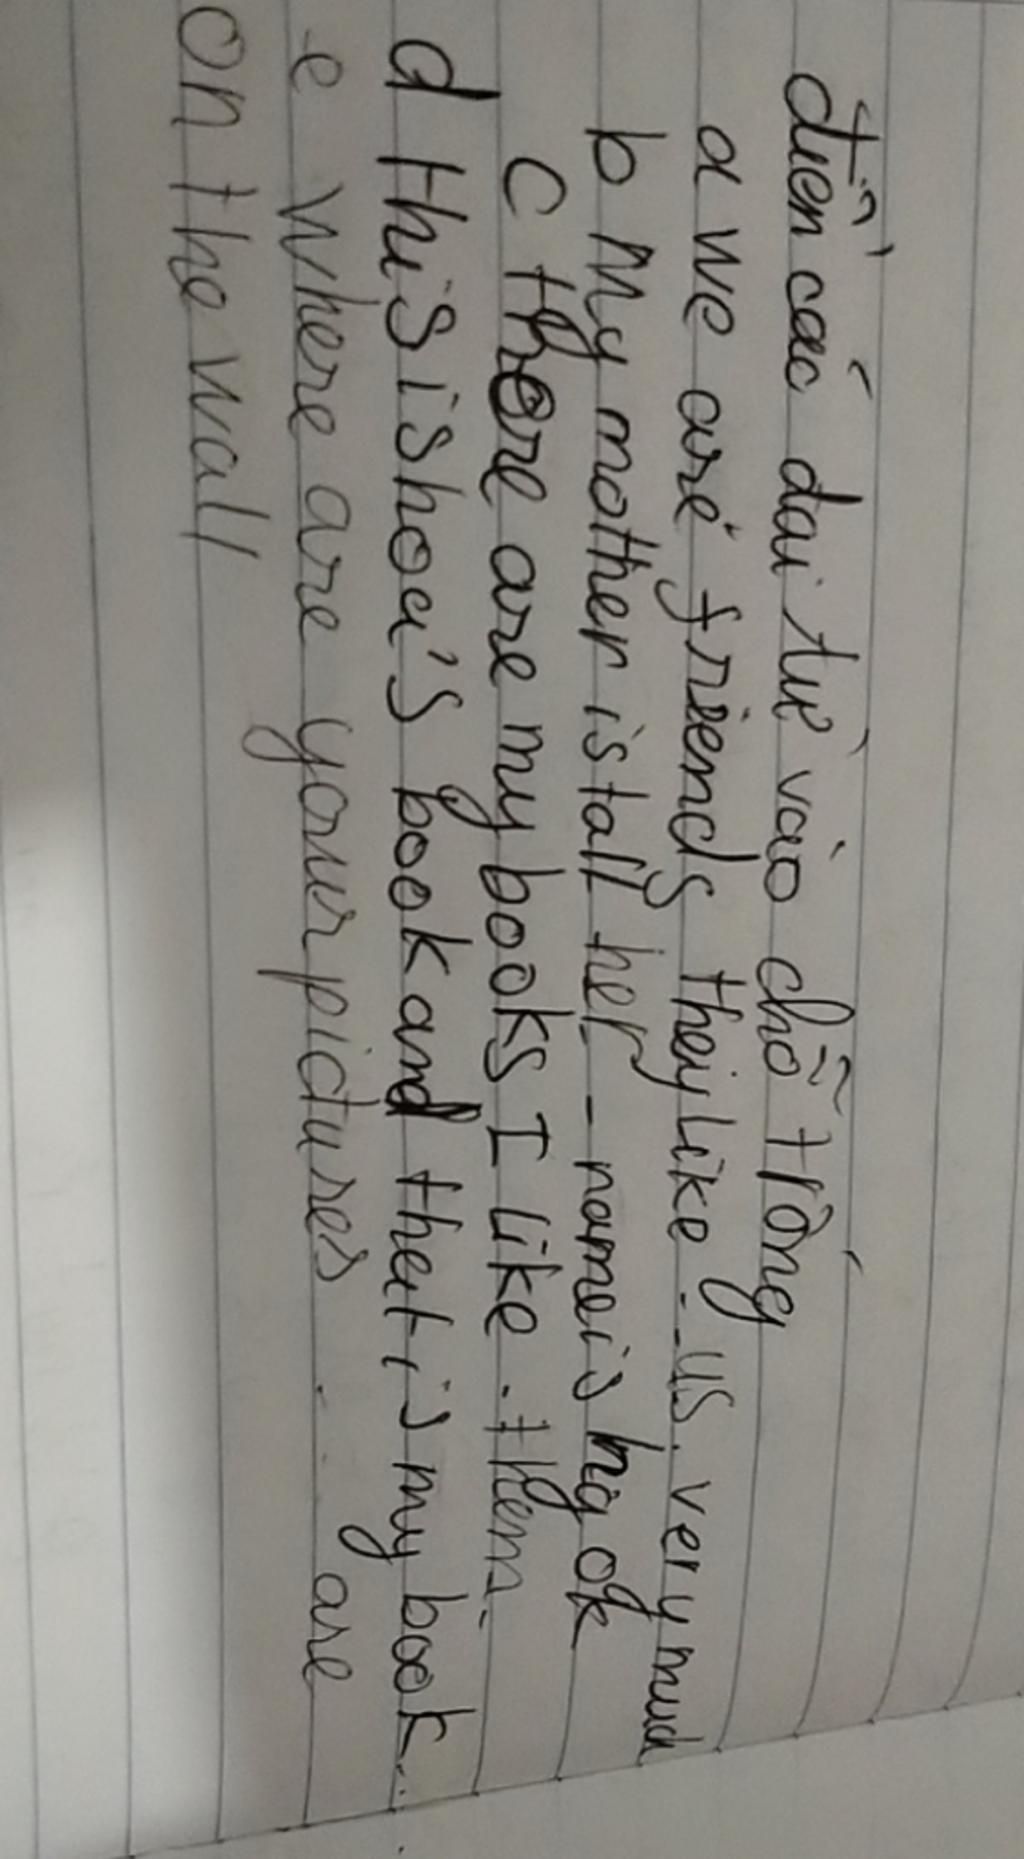 điền các dai từ vào chỗ trống
a we are friends they like - - us. very much
b My mother is tall her - - name is hgok
c there are my books I like . them -
d this is hoa's book and that is my book ...
e where are your pictures . . . are
on the wall